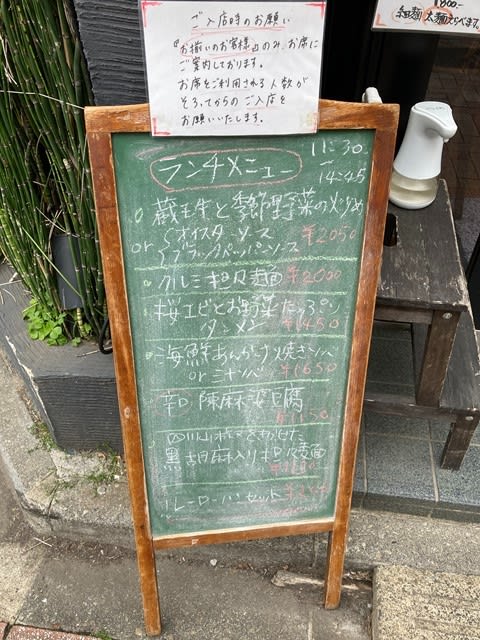 ¥800-
細麺 太麺えらべます。
ご入店時のお願い
『お揃いのお客様』のみ、お席に
ご案内しております。
お席をご利用される人数が
そろってからの ご入店を
お願いいたします。
ランチメニュー
11:30
14:45
蔵王牛と季節野菜の炒め
or オイスターソース
ブラックペッパーソース ¥2050
クルミ担々麺 ¥2000
桜エビとお野菜たっぷり
タンメン ¥1450
海鮮あんかけ焼きソバ
¥1650
辛口 陳麻婆豆腐
黒胡麻入り担々麺
ルーローハンセット